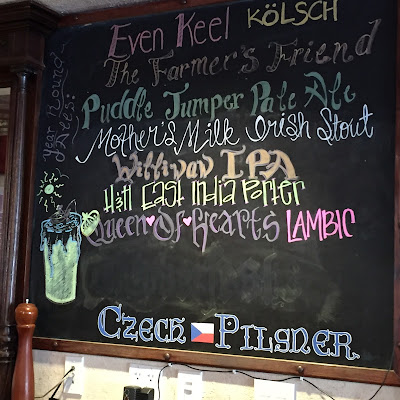 Year Round
Ales:
Even Keel KÖLSCH
The Farmer's Friend
Puddle Jumper Pale Ale
Mother's Milk Irish Stout
Willivav IPA
H3H East India Porter
Queen Of Hearts LAMBIC
CZECH PILSNER